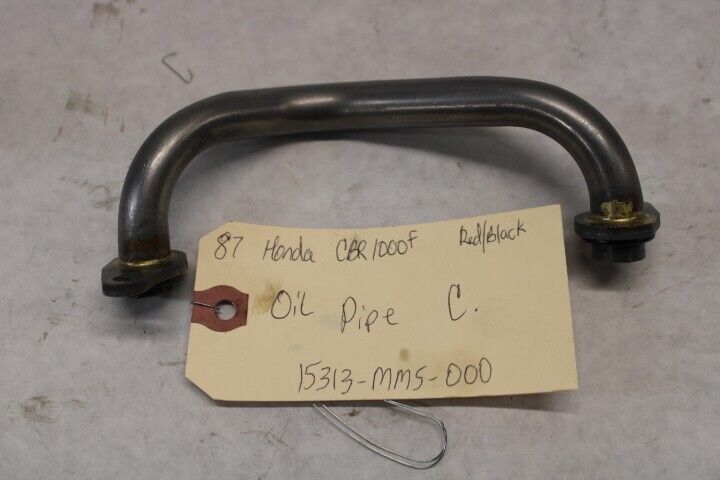 87 Honda CBR1000F Red/Black
Oil Pipe C.
15313-MM5-000